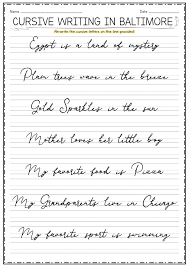 Name: Date:
CURSIVE WRITING IN BALTIMORE
Re-write the cursive letters on the line provided
Egypt is a land of mystery
Plam trees wave in the breeze
Gold Sparkles in the sun
Mother loves her little boy
My favorite food is Pizza
My Grandparents live in Chicago
My favorite sport is swimming